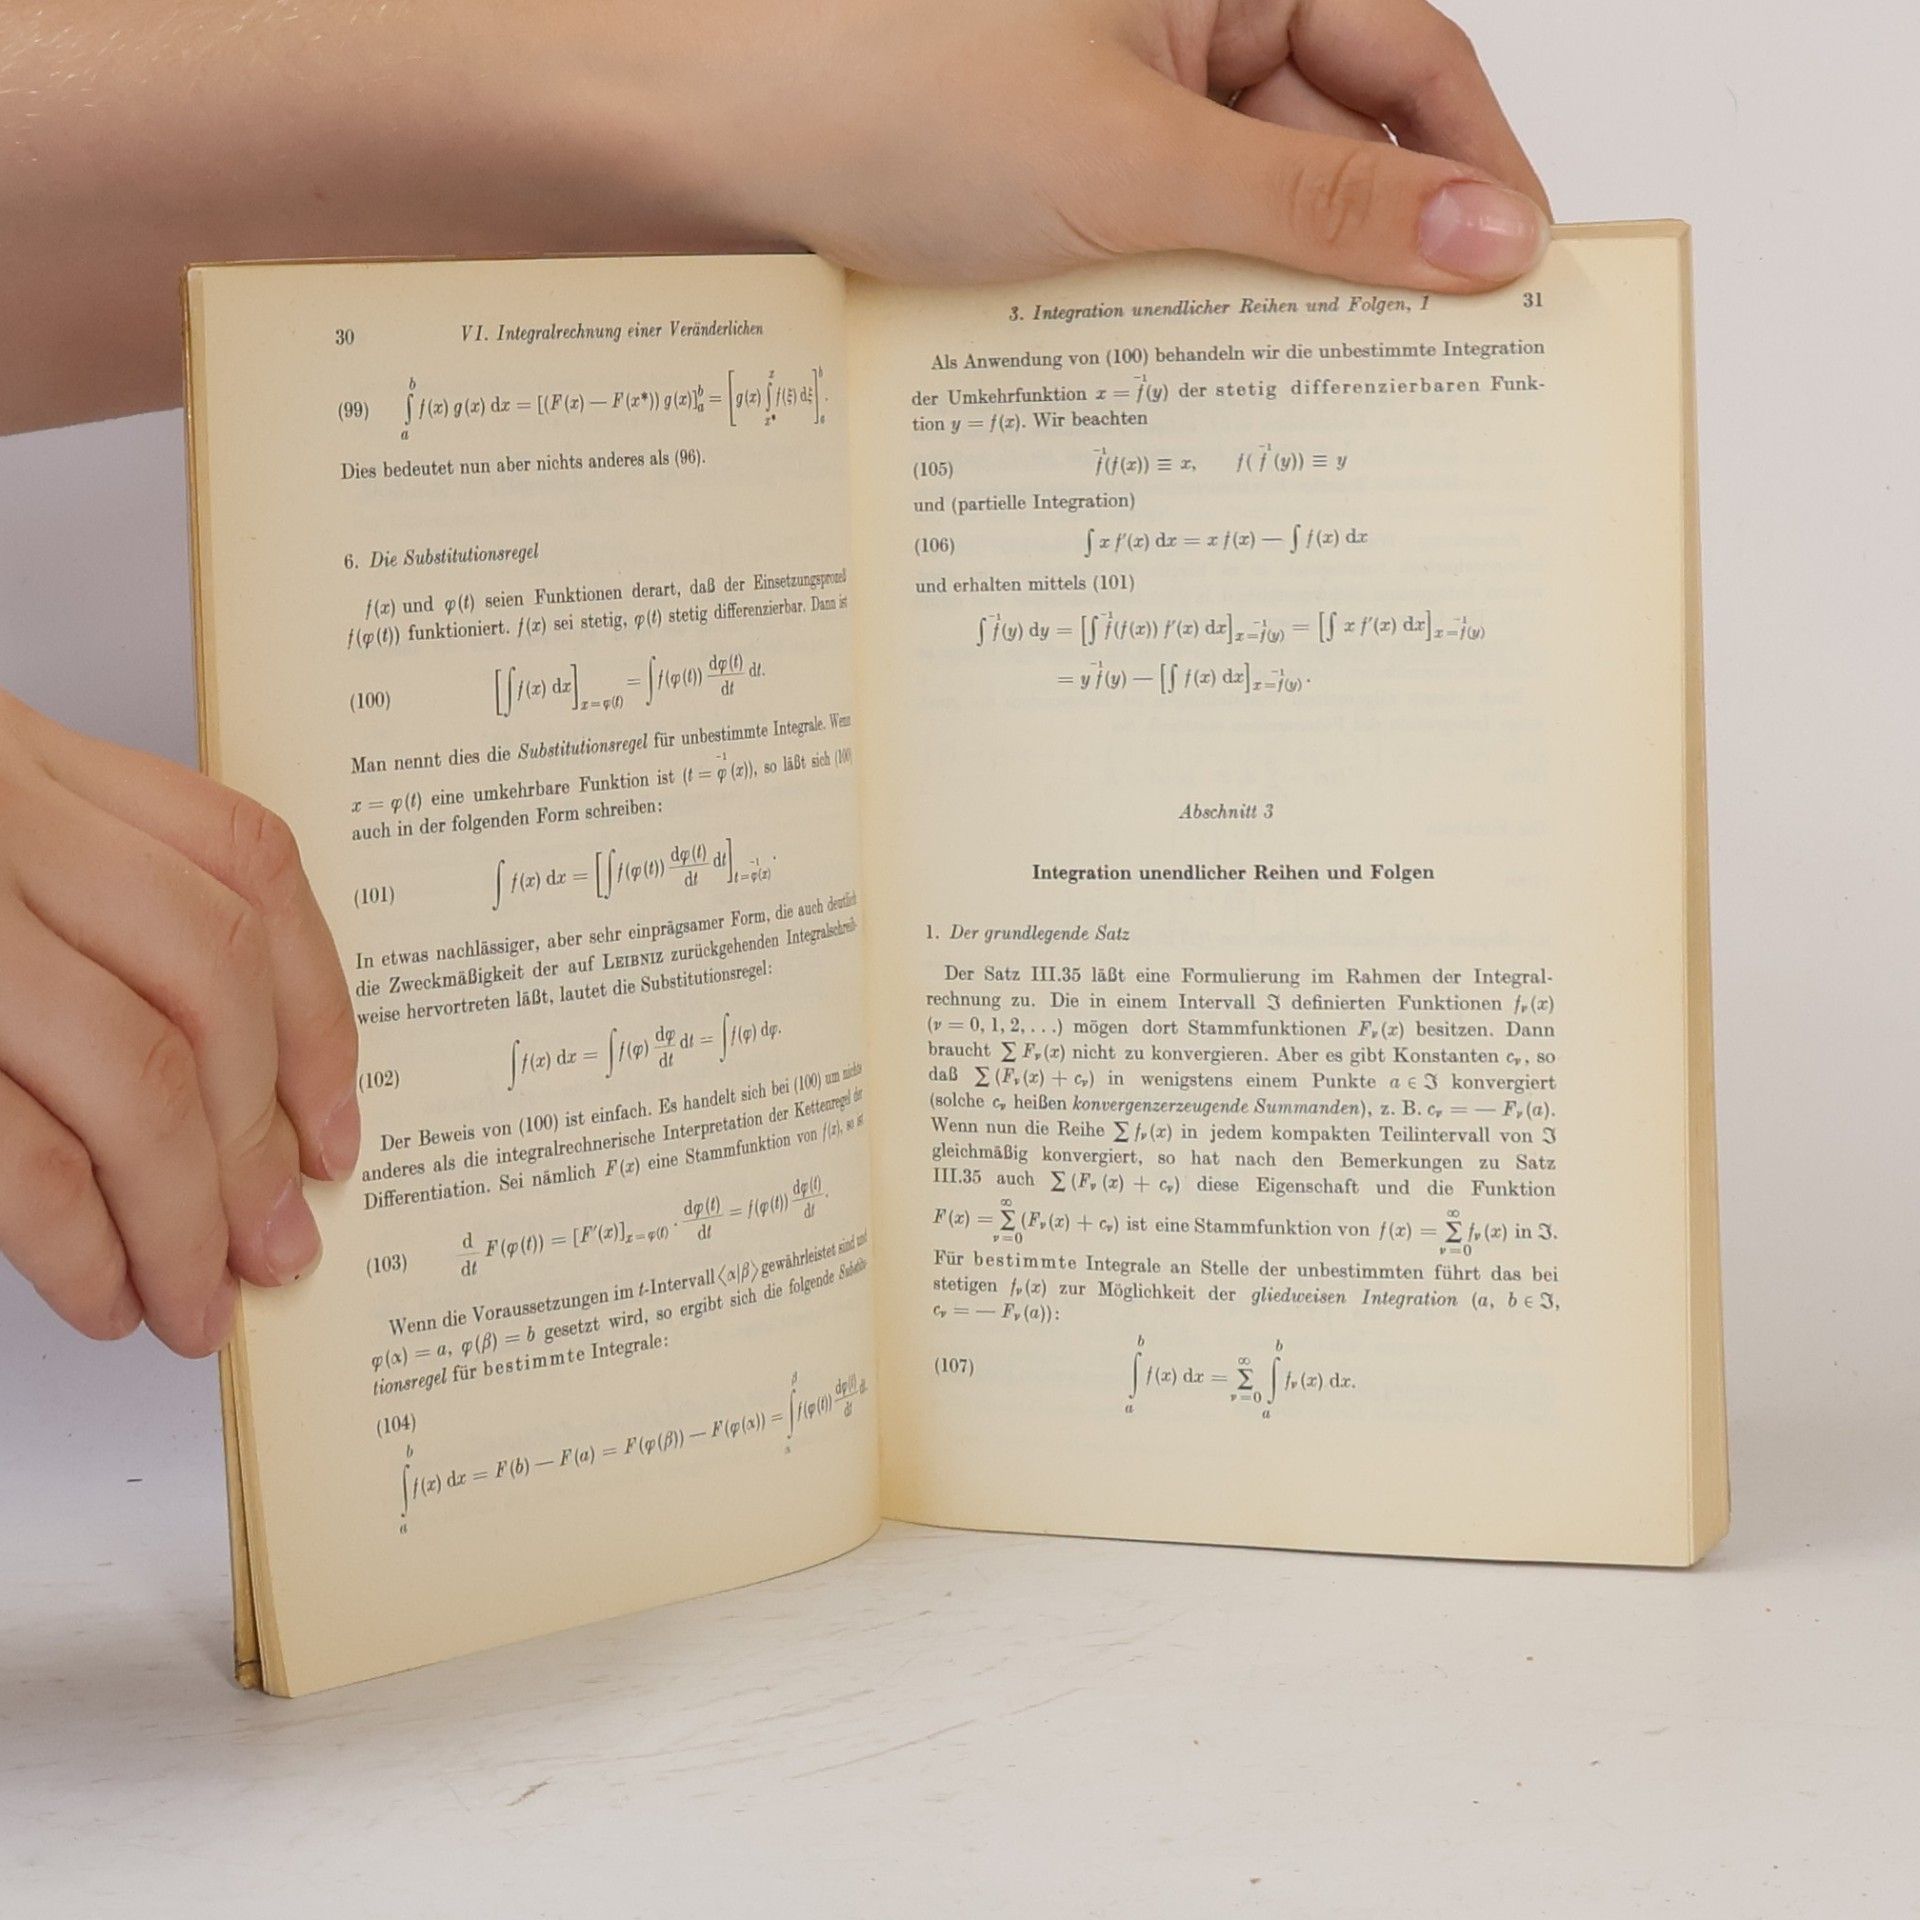 30 VI. Integralrechnung einer Veränderlichen
(99) ∫_a^b f(x) g(x) dx = [(F(x) — F(x*)) g(x)]_a^b = [g(x) ∫_{x*}^x f(ξ) dξ]_a^b.
Dies bedeutet nun aber nichts anderes als (96).
6. Die Substitutionsregel
f(x) und φ(t) seien Funktionen derart, daß der Einsetzungsprozeß
f(φ(t)) funktioniert. f(x) sei stetig, φ(t) stetig differenzierbar. Dann ist
(100) [∫ f(x) dx]_{x=φ(t)} = ∫ f(φ(t)) dφ(t)/dt dt.
Man nennt dies die Substitutionsregel für unbestimmte Integrale. Wenn
x = φ(t) eine umkehrbare Funktion ist (t = φ^{-1}(x)), so läßt sich (100)
auch in der folgenden Form schreiben:
(101) ∫ f(x) dx = [∫ f(φ(t)) dφ(t)/dt dt]_{t=φ^{-1}(x)}.
In etwas nachlässiger, aber sehr einprägsamer Form, die auch deutlich
die Zweckmäßigkeit der auf LEIBNIZ zurückgehenden Integralschreib-
weise hervortreten läßt, lautet die Substitutionsregel:
(102) ∫ f(x) dx = ∫ f(φ) dφ/dt dt = ∫ f(φ) dφ.
Der Beweis von (100) ist einfach. Es handelt sich bei (100) um nichts
anderes als die integralrechnerische Interpretation der Kettenregel der
Differentiation. Sei nämlich F(x) eine Stammfunktion von f(x), so ist
(103) d/dt F(φ(t)) = [F′(x)]_{x=φ(t)} · dφ(t)/dt = f(φ(t)) dφ(t)/dt.
Wenn die Voraussetzungen im t-Intervall ⟨α|β⟩ gewährleistet sind und
φ(α) = a, φ(β) = b gesetzt wird, so ergibt sich die folgende Substitu-
tionsregel für bestimmte Integrale:
(104)
∫_a^b f(x) dx = F(b) — F(a) = F(φ(β)) — F(φ(α)) = ∫_α^β f(φ(t)) dφ(t)/dt dt.
3. Integration unendlicher Reihen und Folgen, 1 31
Als Anwendung von (100) behandeln wir die unbestimmte Integration
der Umkehrfunktion x = f^{-1}(y) der stetig differenzierbaren Funk-
tion y = f(x). Wir beachten
(105) f^{-1}(f(x)) ≡ x, f(f^{-1}(y)) ≡ y
und (partielle Integration)
(106) ∫ x f′(x) dx = x f(x) — ∫ f(x) dx
und erhalten mittels (101)
∫ f^{-1}(y) dy = [∫ f^{-1}(f(x)) f′(x) dx]_{x=f^{-1}(y)} = [∫ x f′(x) dx]_{x=f^{-1}(y)}
= y f^{-1}(y) — [∫ f(x) dx]_{x=f^{-1}(y)}.
Abschnitt 3
Integration unendlicher Reihen und Folgen
1. Der grundlegende Satz
Der Satz III.35 läßt eine Formulierung im Rahmen der Integral-
rechnung zu. Die in einem Intervall ℑ definierten Funktionen f_ν(x)
(ν = 0, 1, 2, ...) mögen dort Stammfunktionen F_ν(x) besitzen. Dann
braucht ∑ F_ν(x) nicht zu konvergieren. Aber es gibt Konstanten c_ν, so
daß ∑ (F_ν(x) + c_ν) in wenigstens einem Punkte a ∈ ℑ konvergiert
(solche c_ν heißen konvergenzerzeugende Summanden), z. B. c_ν = — F_ν(a).
Wenn nun die Reihe ∑ f_ν(x) in jedem kompakten Teilintervall von ℑ
gleichmäßig konvergiert, so hat nach den Bemerkungen zu Satz
III.35 auch ∑ (F_ν(x) + c_ν) diese Eigenschaft und die Funktion
F(x) = ∑_{ν=0}^∞ (F_ν(x) + c_ν) ist eine Stammfunktion von f(x) = ∑_{ν=0}^∞ f_ν(x) in ℑ.
Für bestimmte Integrale an Stelle der unbestimmten führt das bei
stetigen f_ν(x) zur Möglichkeit der gliedweisen Integration (a, b ∈ ℑ,
c_ν = — F_ν(a)):
(107) ∫_a^b f(x) dx = ∑_{ν=0}^∞ ∫_a^b f_ν(x) dx.